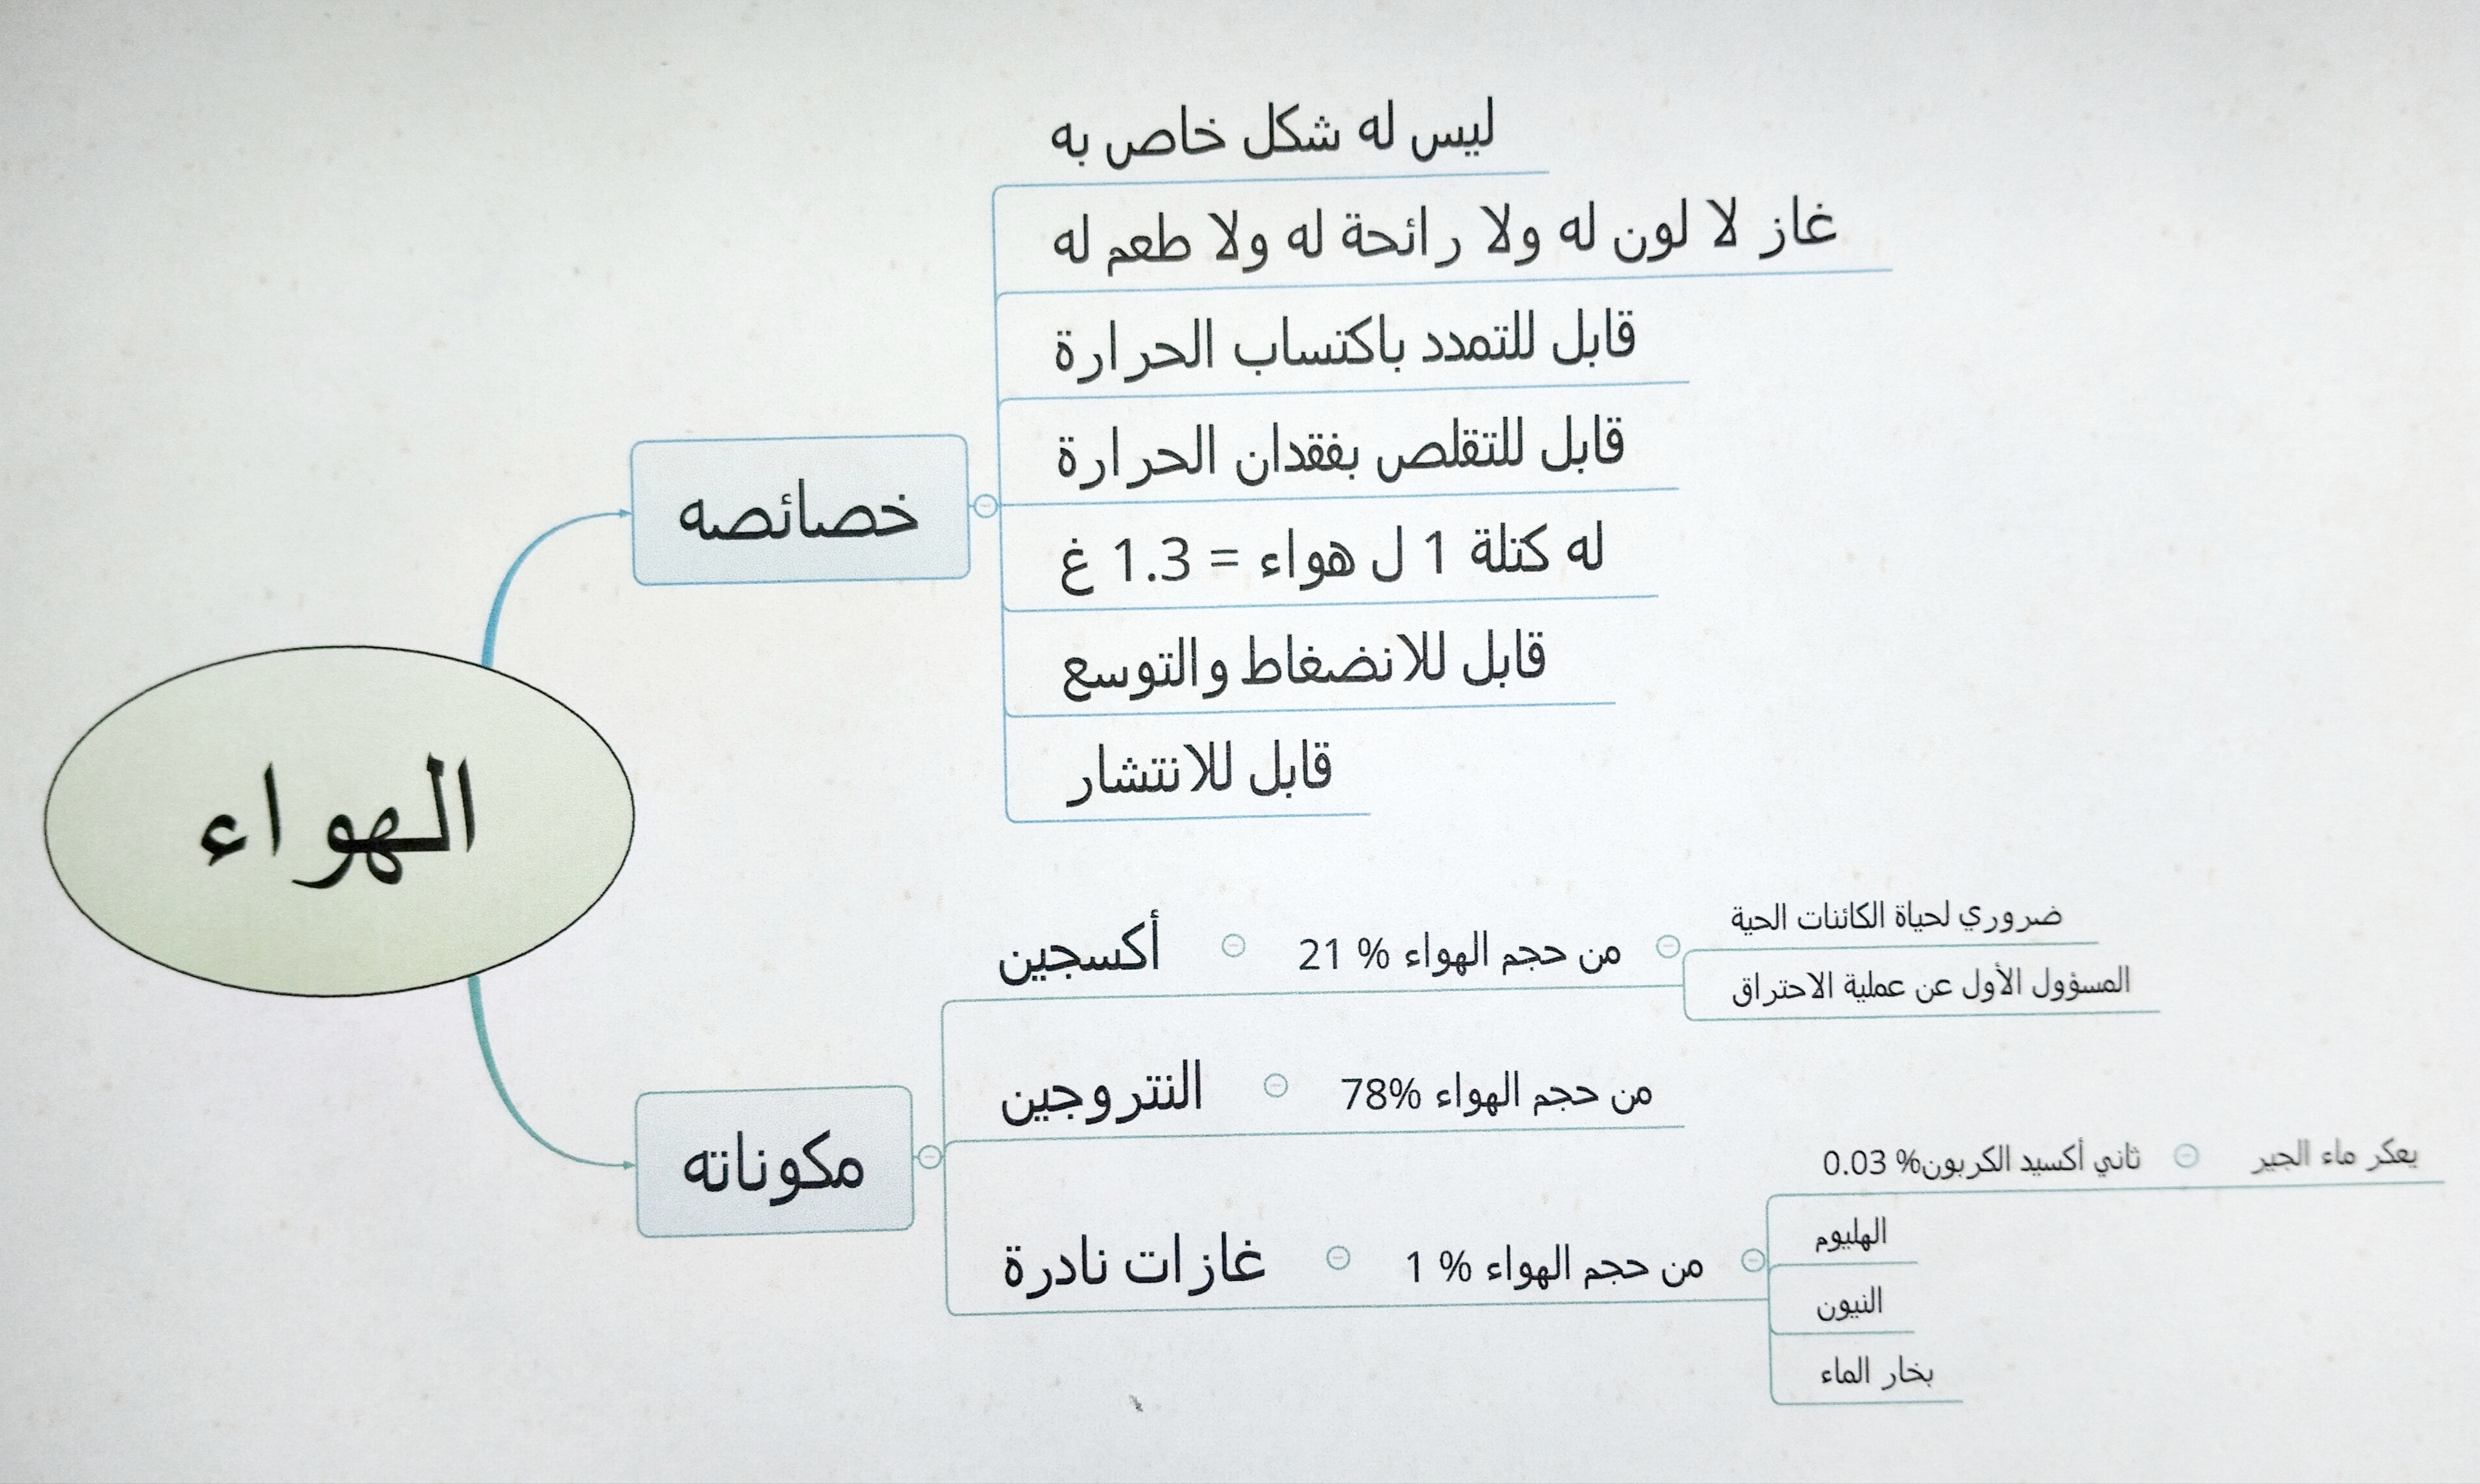 الهواء
خصائصه
ليس له شكل خاص به
غاز لا لون له ولا رائحة له ولا طعم له
قابل للتمدد باكتساب الحرارة
قابل للتقلص بفقدان الحرارة
له كتلة 1 ل هواء = 1.3 غ
قابل للانضغاط والتوسع
قابل للانتشار
مكوناته
أكسجين
من حجم الهواء % 21
ضروري لحياة الكائنات الحية
المسؤول الأول عن عملية الاحتراق
النتروجين
من حجم الهواء %78
غازات نادرة
من حجم الهواء % 1
ثاني أكسيد الكربون% 0.03
يعكر ماء الجير
الهليوم
النيون
بخار الماء